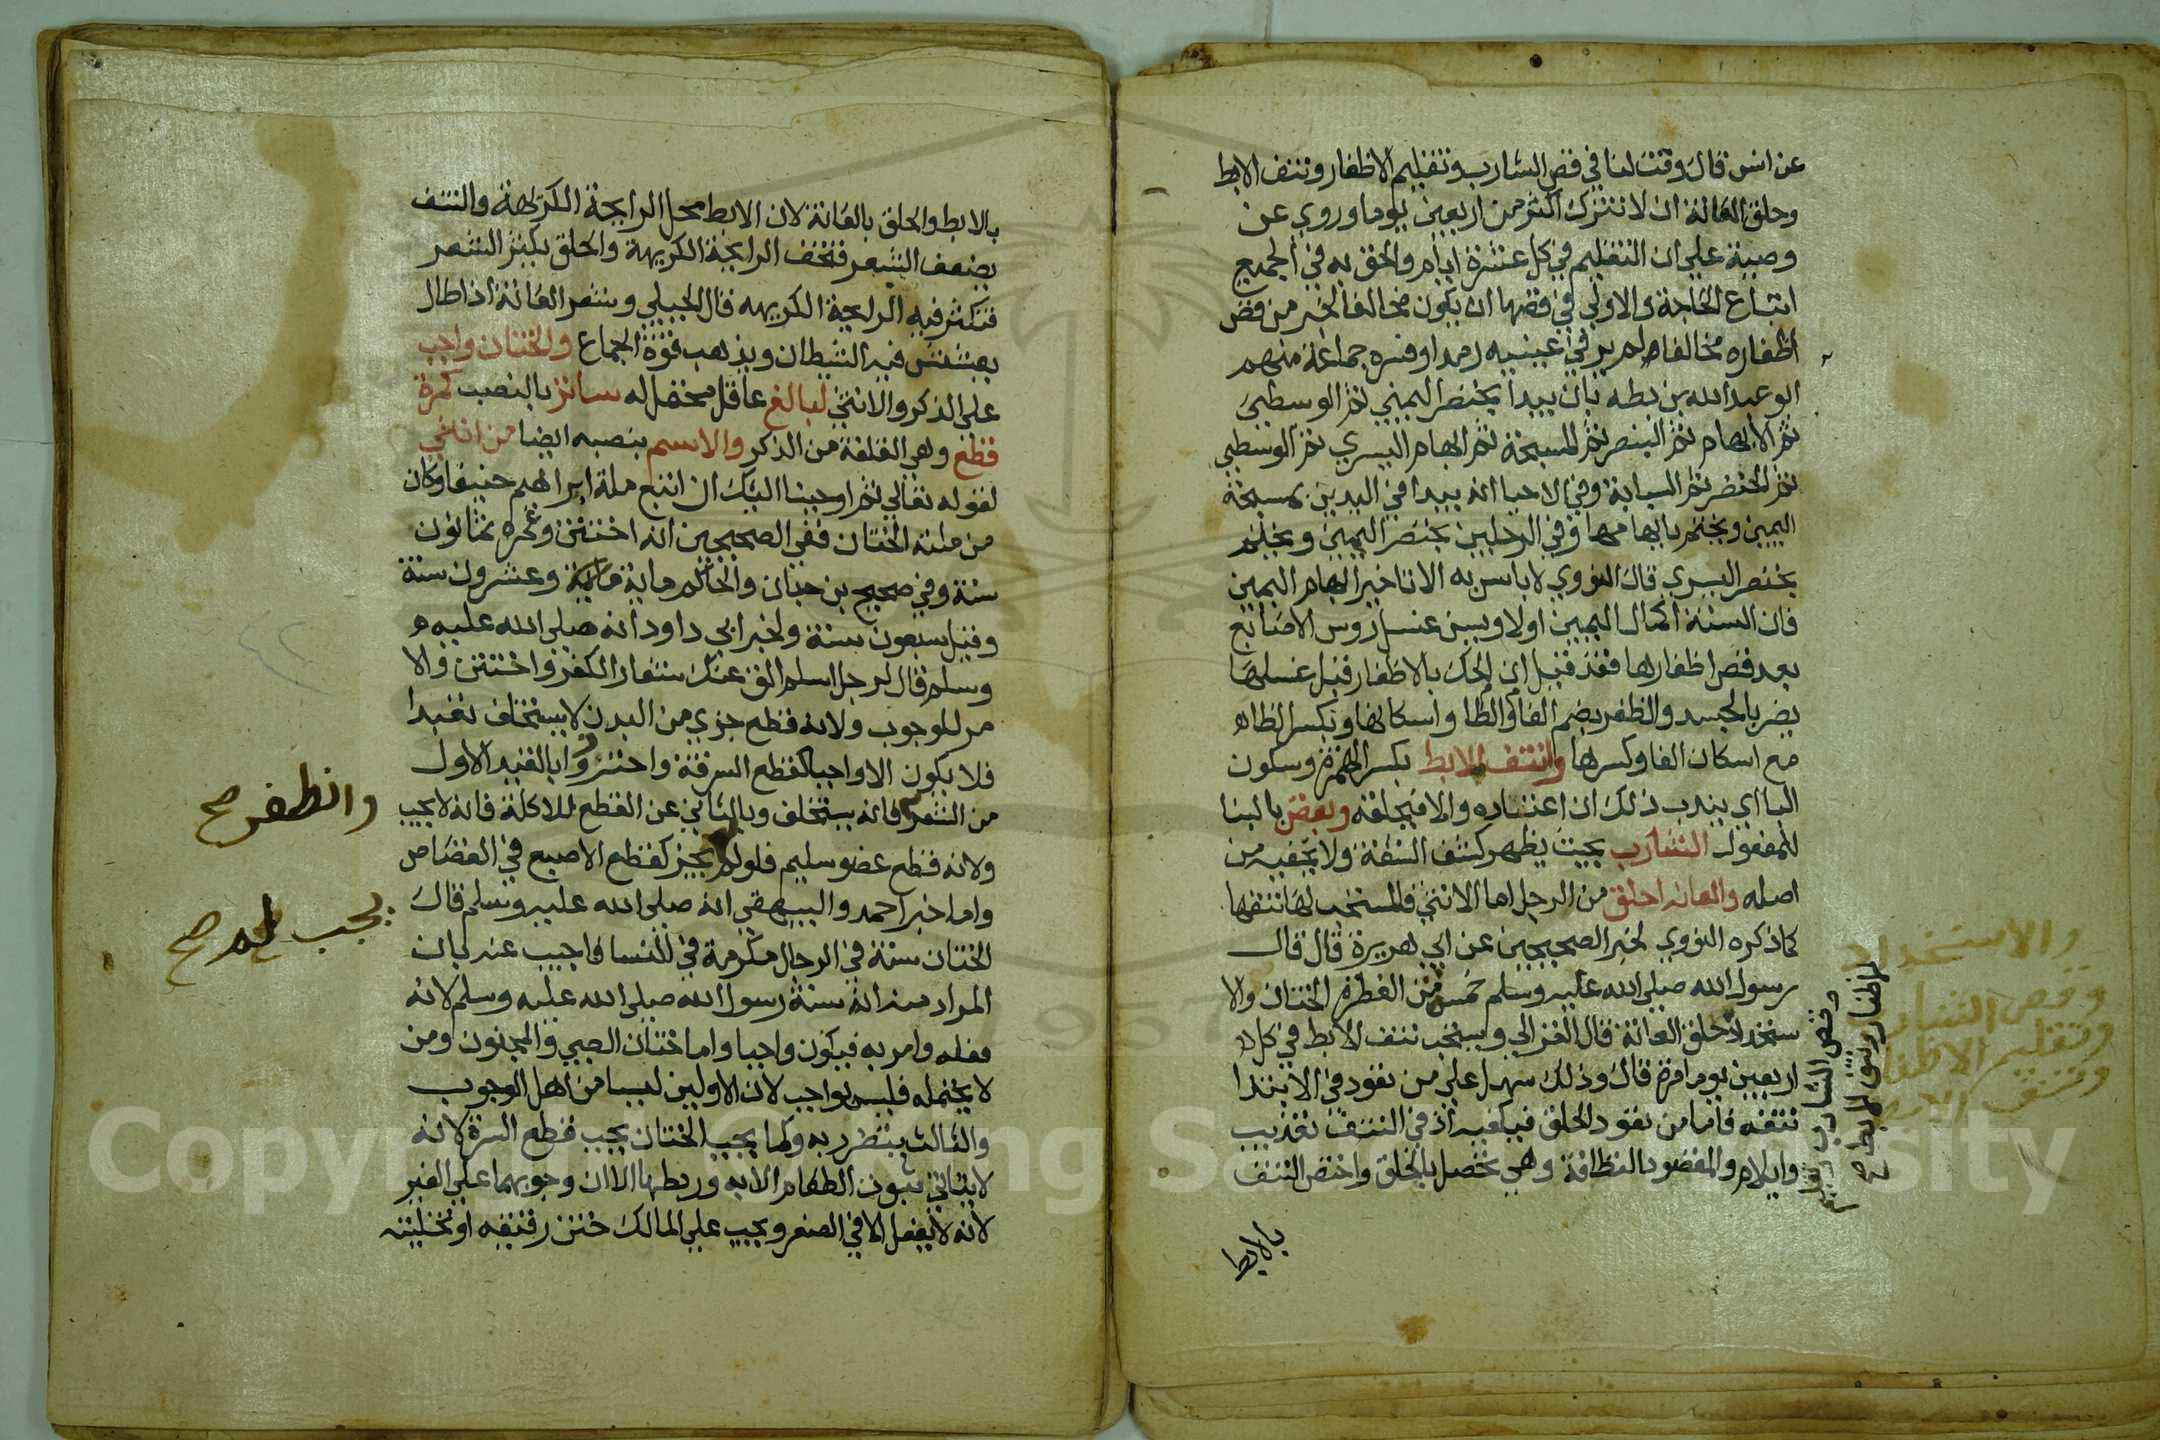 عن انس قال وقت لنا في قص الشارب وتقليم الاظفار ونتف الابط
وحلق العانة ان لا نترك اكثر من اربعين يوما وروي عن
وصية علي ان التقليم في كل عشرة ايام والحق به في الجميع
اتباع الحاجة والاولى في قصها ان يكون مخالفا لخبر من قص
اظفاره مخالفا لم ير في عينيه رمدا وفسره جماعة منهم
ابو عبد الله بن بطه بان يبدا بخنصر اليمني ثم الوسطي
ثم الابهام ثم البنصر ثم المسبحة ثم ابهام اليسري ثم الوسطي
ثم الخنصر ثم السبابة وفي الاحيا انه يبدا في اليدين بمسبحة
اليمين ويختم بابهامها وفي الرجلين بخنصر اليمين ويختم
بخنصر اليسري قال النووي لا باس به الا تاخير ابهام اليمين
فان السنة اكمال اليمين اولا ويسن غسل روس الاصابع
بعد قص اظفارها فقد قيل ان الحك بالاظفار قبل غسلها
يضر بالجسد والظفر بضم الفا والظا واسكانها وبكسر الظاء
مع اسكان الفا وكسرها وانتف الابط بكسر الهمزة وسكون
البا اي يندب ذلك ان اعتاده والا فيحلقه ويقص بالبنا
للمفعول الشارب بحيث يظهر كشف الشفة ولا يحفيه من
اصله والعانه احلق من الرجل اما الانثي فالمستحب لها نتفها
كما ذكره النووي لخبر الصحيحين عن ابي هريرة قال قال
رسول الله صلي الله عليه وسلم خمس من الفطرة الختان والا
ستحداد حلق العانة قال الغزالي ويستحب نتف الابط في كل
اربعين يوما مرة قال وذلك سهل علي من تعود في الابتدا
نتفه فاما من تعود الحلق فيكفيه اذ في النتف تعذيب
وايلام والمقصود النظافة وهي تحصل بالحلق واختص النتف
بالابط
والاستحداد
وقص الشارب
وتقليم الاظفار
ونتف الابط
قص الشارب وتقليم
الاظفار ونتف الابط صح
بالابط والحلق بالعانة لان الابط محل الرايحة الكريهة والنتف
يضعف الشعر فتخف الرايحة الكريهة والحلق يكثر الشعر
فتكثر فيه الرايحة الكريهه قال الجيلي وشعر العانة اذا طال
يعشش فيه الشيطان ويذهب قوة الجماع والختان واجب
علي الذكر والانثي لبالغ عاقل محتمل له ساتر بالنصب كمرة
قطع وهو القلفة من الذكر والاسم بنصبه ايضا من انثي
لقوله تعالي ثم اوحينا اليك ان اتبع ملة ابراهيم حنيفا وكان
من ملته الختان ففي الصحيحين انه اختتن وعمره ثمانون
سنة وفي صحيح بن حبان والحاكم ماية وعشرون سنة
وقيل سبعون سنة ولخبر ابي داود انه صلي الله عليه
وسلم قال لرجل اسلم الق عنك شعار الكفر واختتن والا
مر للوجوب ولانه قطع جزي من البدن لا يستخلف تعبدا
فلا يكون الا واجبا كقطع السرقة واحترزوا بالقيد الاول
من الشعر فانه يستخلف وبالثاني عن القطع للاكلة فانه لا يجب
والظفر صح
ولانه قطع عضو سليم فلو لم يجز كقطع الاصبع في القصاص
يجب لم صح
واما خبر احمد والبيهقي انه صلي الله عليه وسلم قال
الختان سنة في الرجال مكرمة في النسا فاجيب عنه بان
المراد منه انه سنة رسول الله صلي الله عليه وسلم لانه
فعله وامر به فيكون واجبا واما ختان الصبي والمجنون ومن
لا يحتمله فليس بواجب لان الاولين ليسا من اهل الوجوب
والثالث يتضرر به وكما يجب الختان يجب قطع السرة لانه
لا يتاتي ثبوت الطعام الا به وربطها الا ان وجوبهما علي الغير
لانه لا يفعل الا في الصغر ويجب علي المالك ختن رقيقه او تخليته